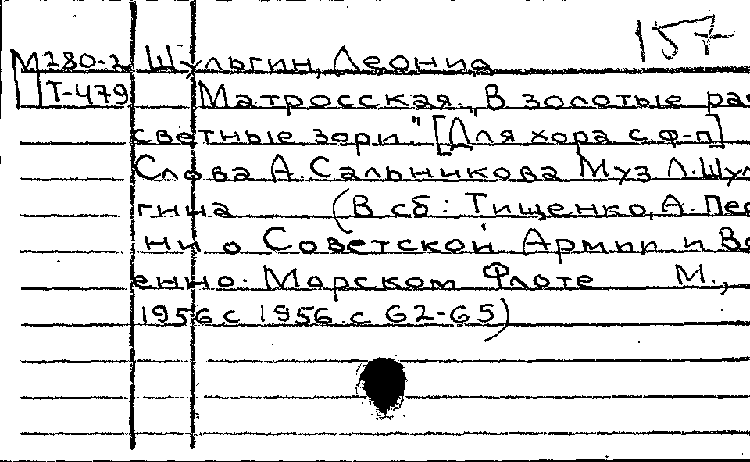 157
М280-2 Шульгин, Леонид
ШТ-479 Матросская „В золотые рас
светные зори" [Для хора с ф-п]
Слова А. Сальникова Муз Л. Шул
гина (В сб: Тищенко, А. Пес
ни о Советской Армии и Во
енно-Морском Флоте М.,
1956 с 1956. с 62-65)